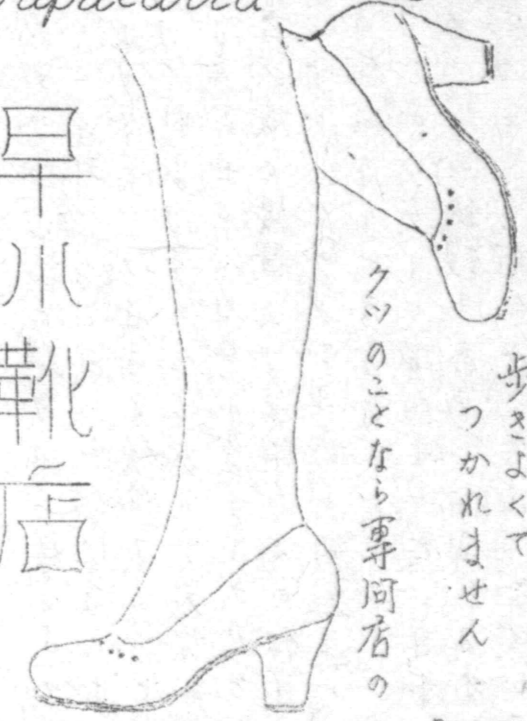 歩きよくて
つかれません
クツのことなら専門店の
早川靴店